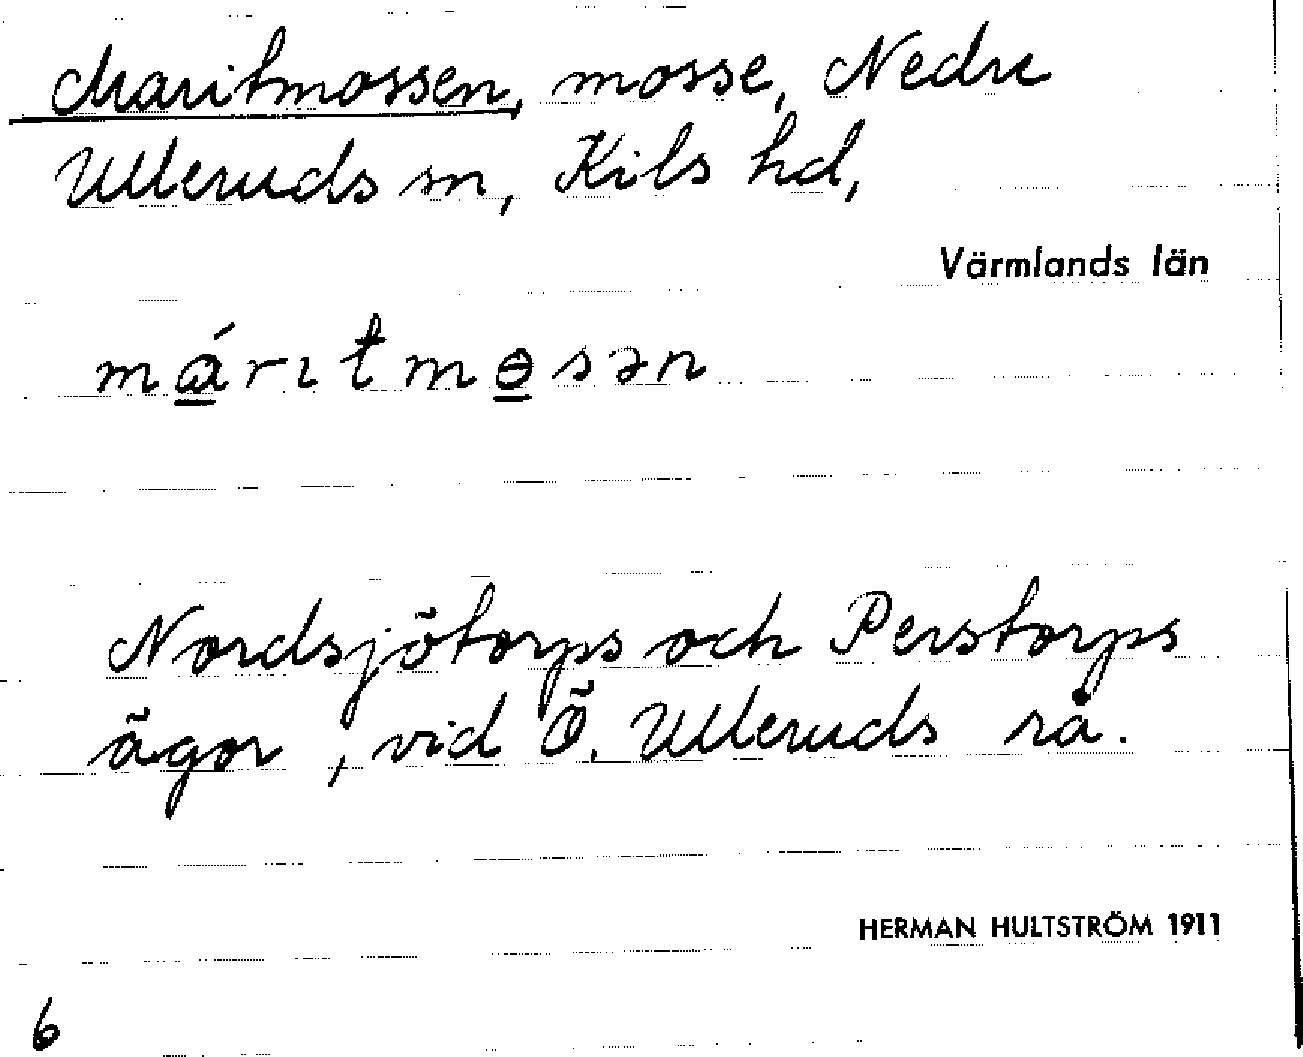 Maritmossen, mosse, Nedre
Ulleruds sn, Kils hd,
Värmlands län
má̱rıtmɵ̱sən
Nordsjötorps och Perstorps
ägor, vid Ö. Ulleruds rå.
HERMAN HULTSTRÖM 1911
6